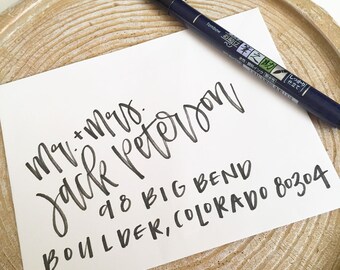 mr. + mrs.
jack peterson
98 BIG BEND
BOULDER, COLORADO 80304